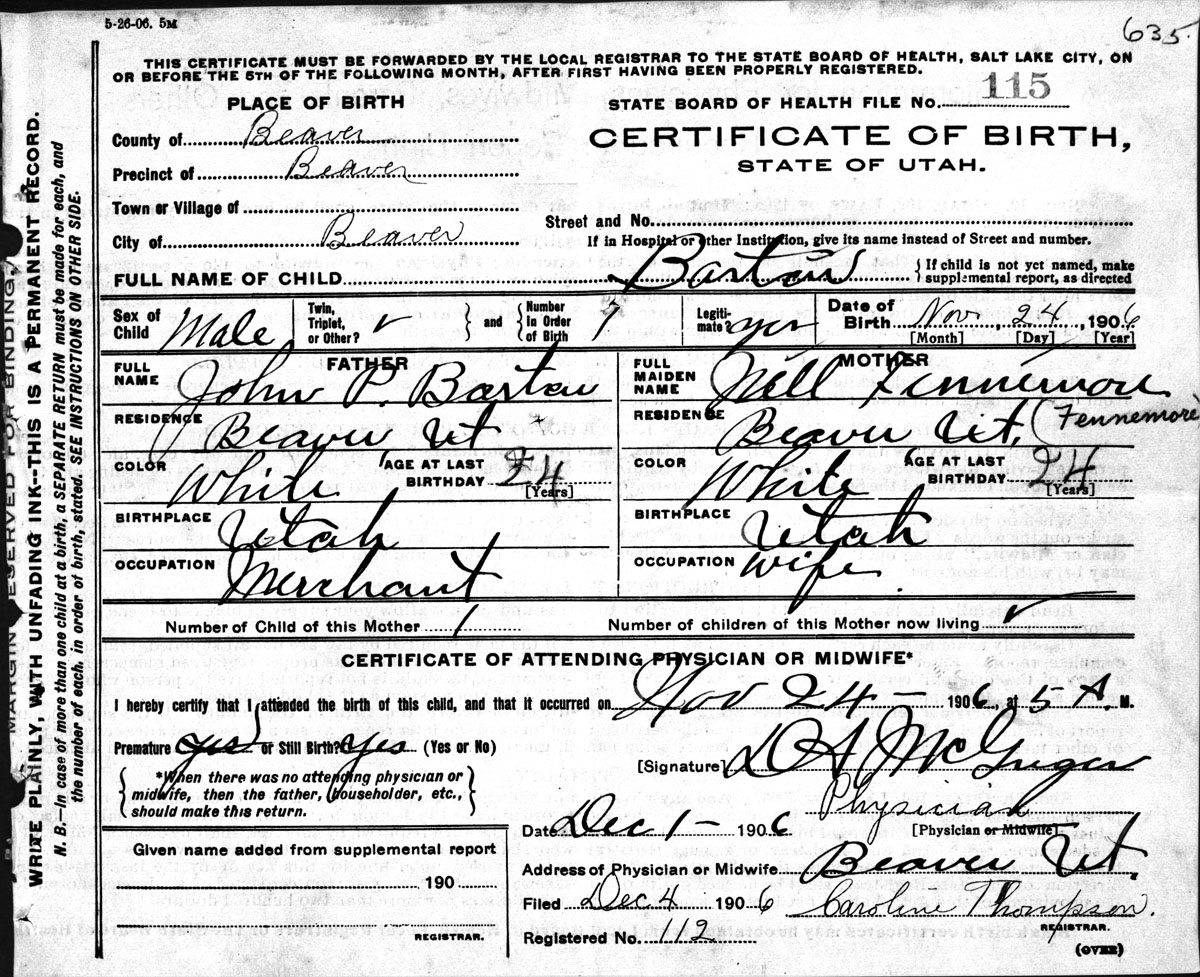 5-26-06. 5M
635.
THIS CERTIFICATE MUST BE FORWARDED BY THE LOCAL REGISTRAR TO THE STATE BOARD OF HEALTH, SALT LAKE CITY, ON
OR BEFORE THE 5TH OF THE FOLLOWING MONTH, AFTER FIRST HAVING BEEN PROPERLY REGISTERED.
PLACE OF BIRTH
STATE BOARD OF HEALTH FILE No. 115
County of Beaver
CERTIFICATE OF BIRTH,
STATE OF UTAH.
Precinct of Beaver
Town or Village of
Street and No.
City of Beaver
If in Hospital or other Institution, give its name instead of Street and number.
FULL NAME OF CHILD Barton { If child is not yet named, make supplemental report, as directed
Sex of Child Male Twin, Triplet, or Other? ✓ } and { Number In Order of Birth Legiti-mate? yes Date of Birth Nov, 24, 1906
[Month] [Day] [Year]
FATHER
MOTHER
FULL NAME John P. Barton
FULL MAIDEN NAME Nell Fennemore
RESIDENCE Beaver Ut
RESIDENCE Beaver Ut. (Fennemore
COLOR White AGE AT LAST BIRTHDAY 24 [Years]
COLOR White AGE AT LAST BIRTHDAY 24 [Years]
BIRTHPLACE Utah
BIRTHPLACE Utah
OCCUPATION Merchant
OCCUPATION Wife
Number of Child of this Mother 1
Number of children of this Mother now living ✓
CERTIFICATE OF ATTENDING PHYSICIAN OR MIDWIFE*
I hereby certify that I attended the birth of this child, and that it occurred on Nov 24 - 1906, at 5 A. M.
Premature yes or Still Birth? yes (Yes or No)
[Signature] D A McGregor
{ *When there was no attending physician or midwife, then the father, householder, etc., should make this return. }
Physician
Date Dec 1 - 1906 [Physician or Midwife]
Given name added from supplemental report
Address of Physician or Midwife Beaver Ut.
190
Filed Dec 4 1906 Caroline Thompson.
REGISTRAR.
REGISTRAR.
Registered No. 112
(OVER)
MARGIN RESERVED FOR BINDING
WRITE PLAINLY, WITH UNFADING INK--THIS IS A PERMANENT RECORD.
N. B.—In case of more than one child at a birth, a SEPARATE RETURN must be made for each, and
the number of each, in order of birth, stated. SEE INSTRUCTIONS ON OTHER SIDE.